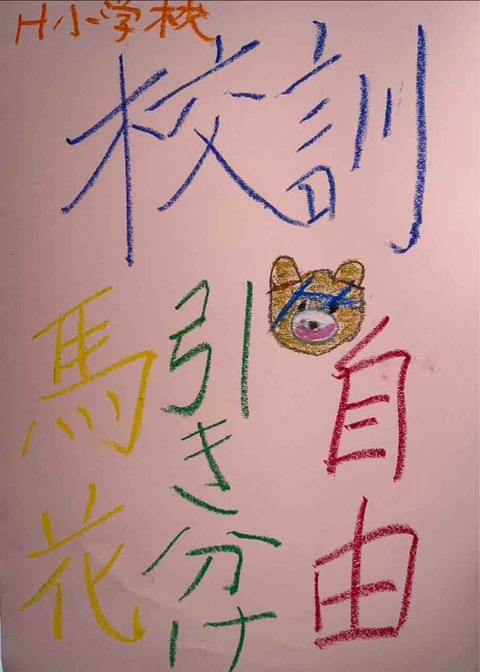 H小学校
校訓
自由
引き分け
馬花